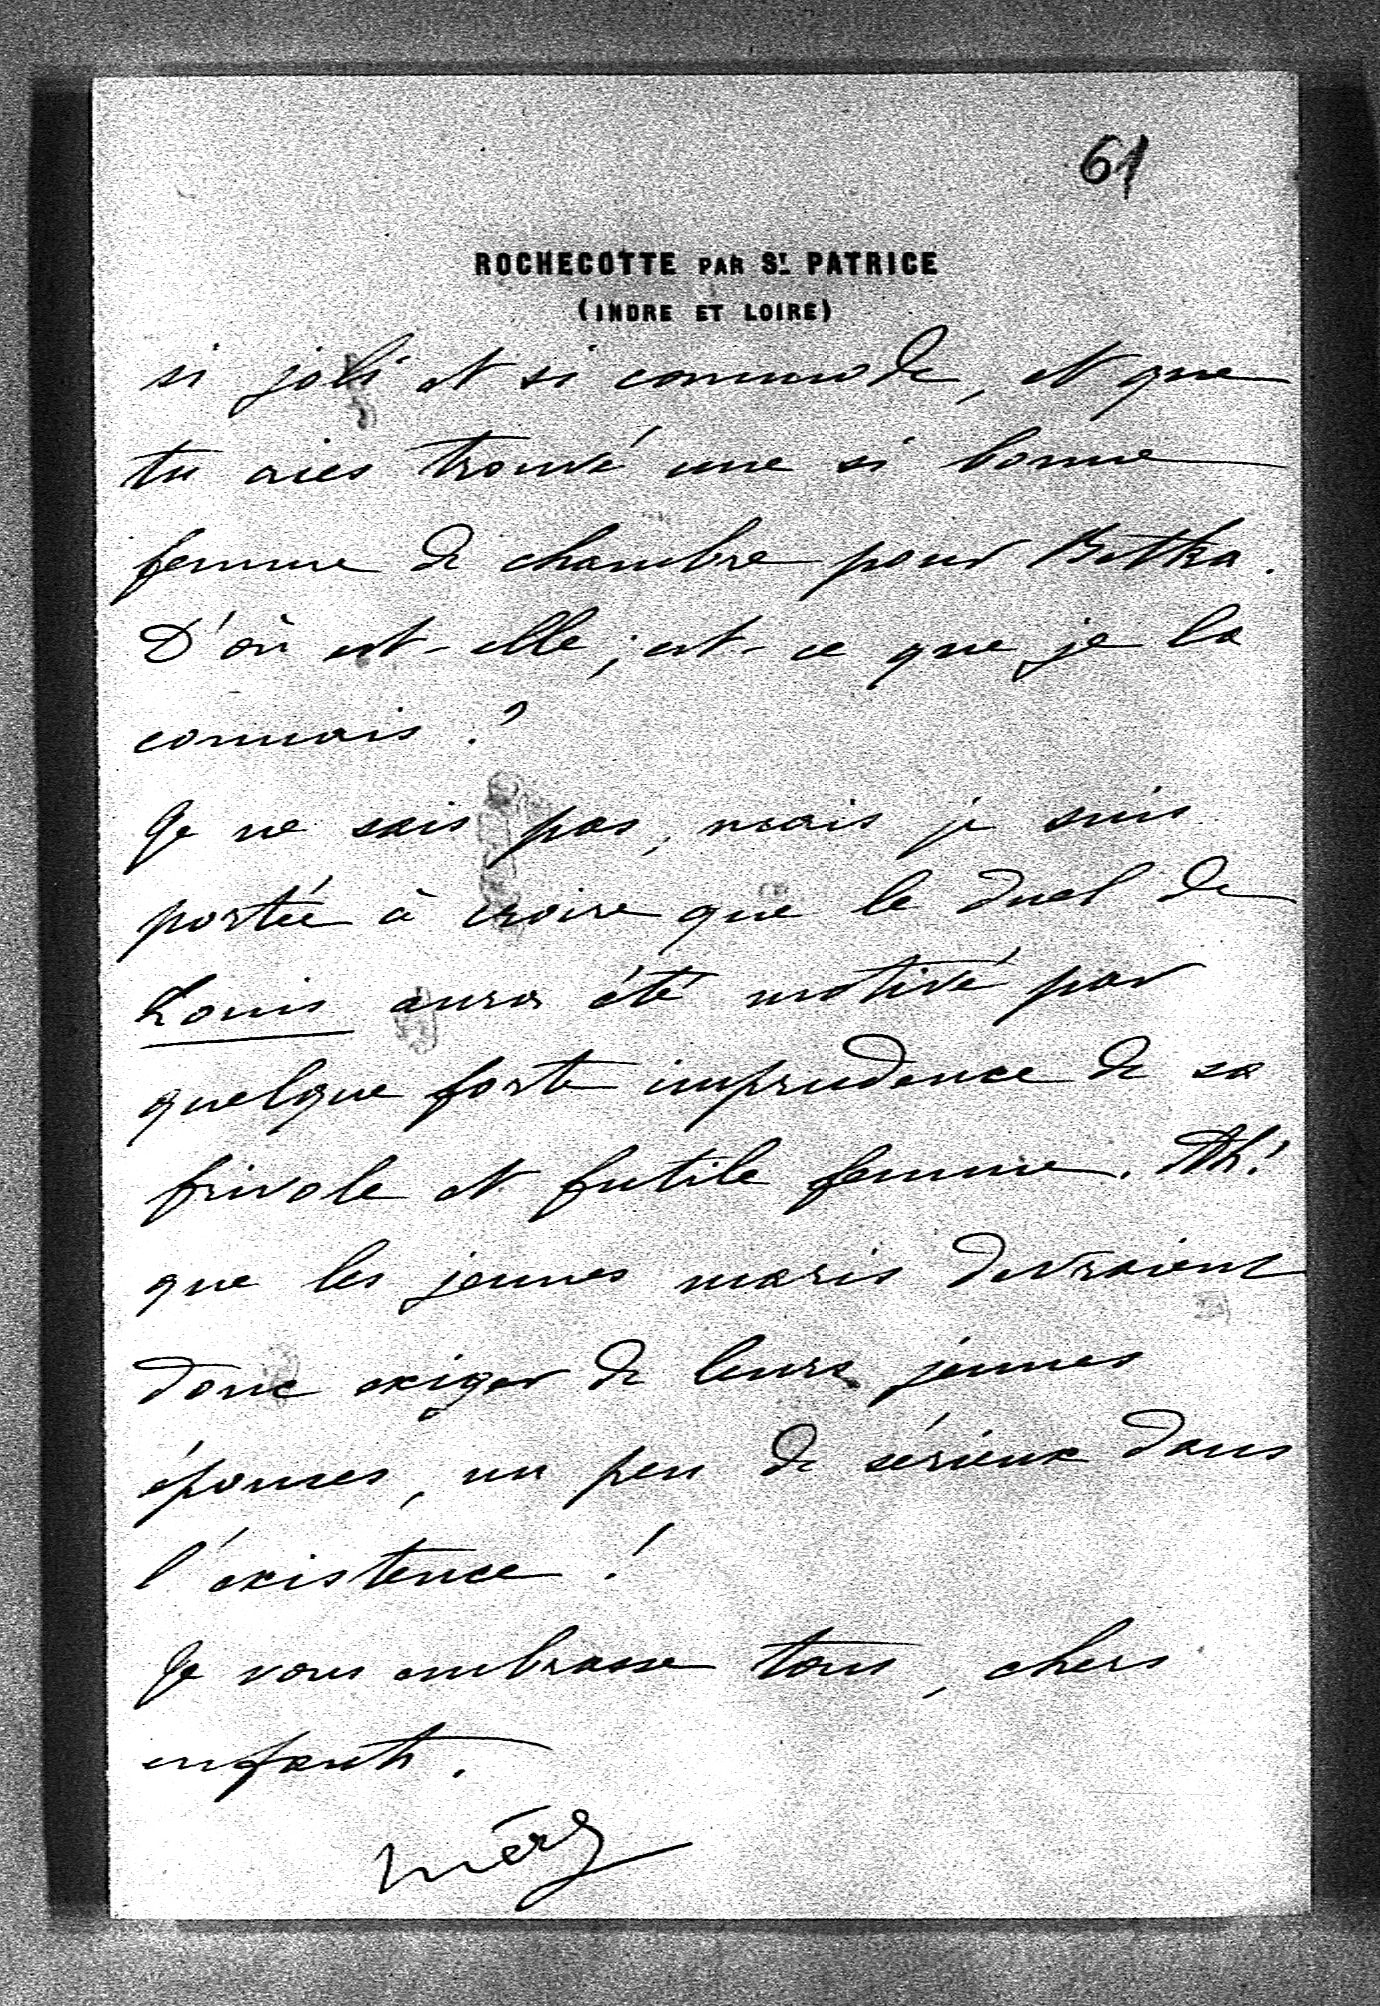 61
ROCHECOTTE PAR St. PATRICE
(INDRE ET LOIRE)
si joli et si commode, et que
tu aies trouvé une si bonne
femme de chambre pour Betka.
D'où est-elle; est-ce que je la
connais?
Je ne sais pas, mais je suis
portée à croire que le duel de
Louis aura été motivé par
quelque forte imprudence de sa
frivole et futile femme. Ah!
que les jeunes maris devraient
donc exiger de leurs jeunes
épouses, un peu de sérieux dans
l'existence!
Je vous embrasse tous, chers
enfants.
mère